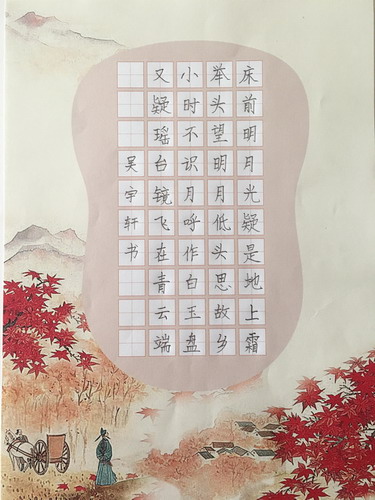 床前明月光疑是地上霜
举头望明月低头思故乡
小时不识月呼作白玉盘
又疑瑶台镜飞在青云端
吴宇轩书